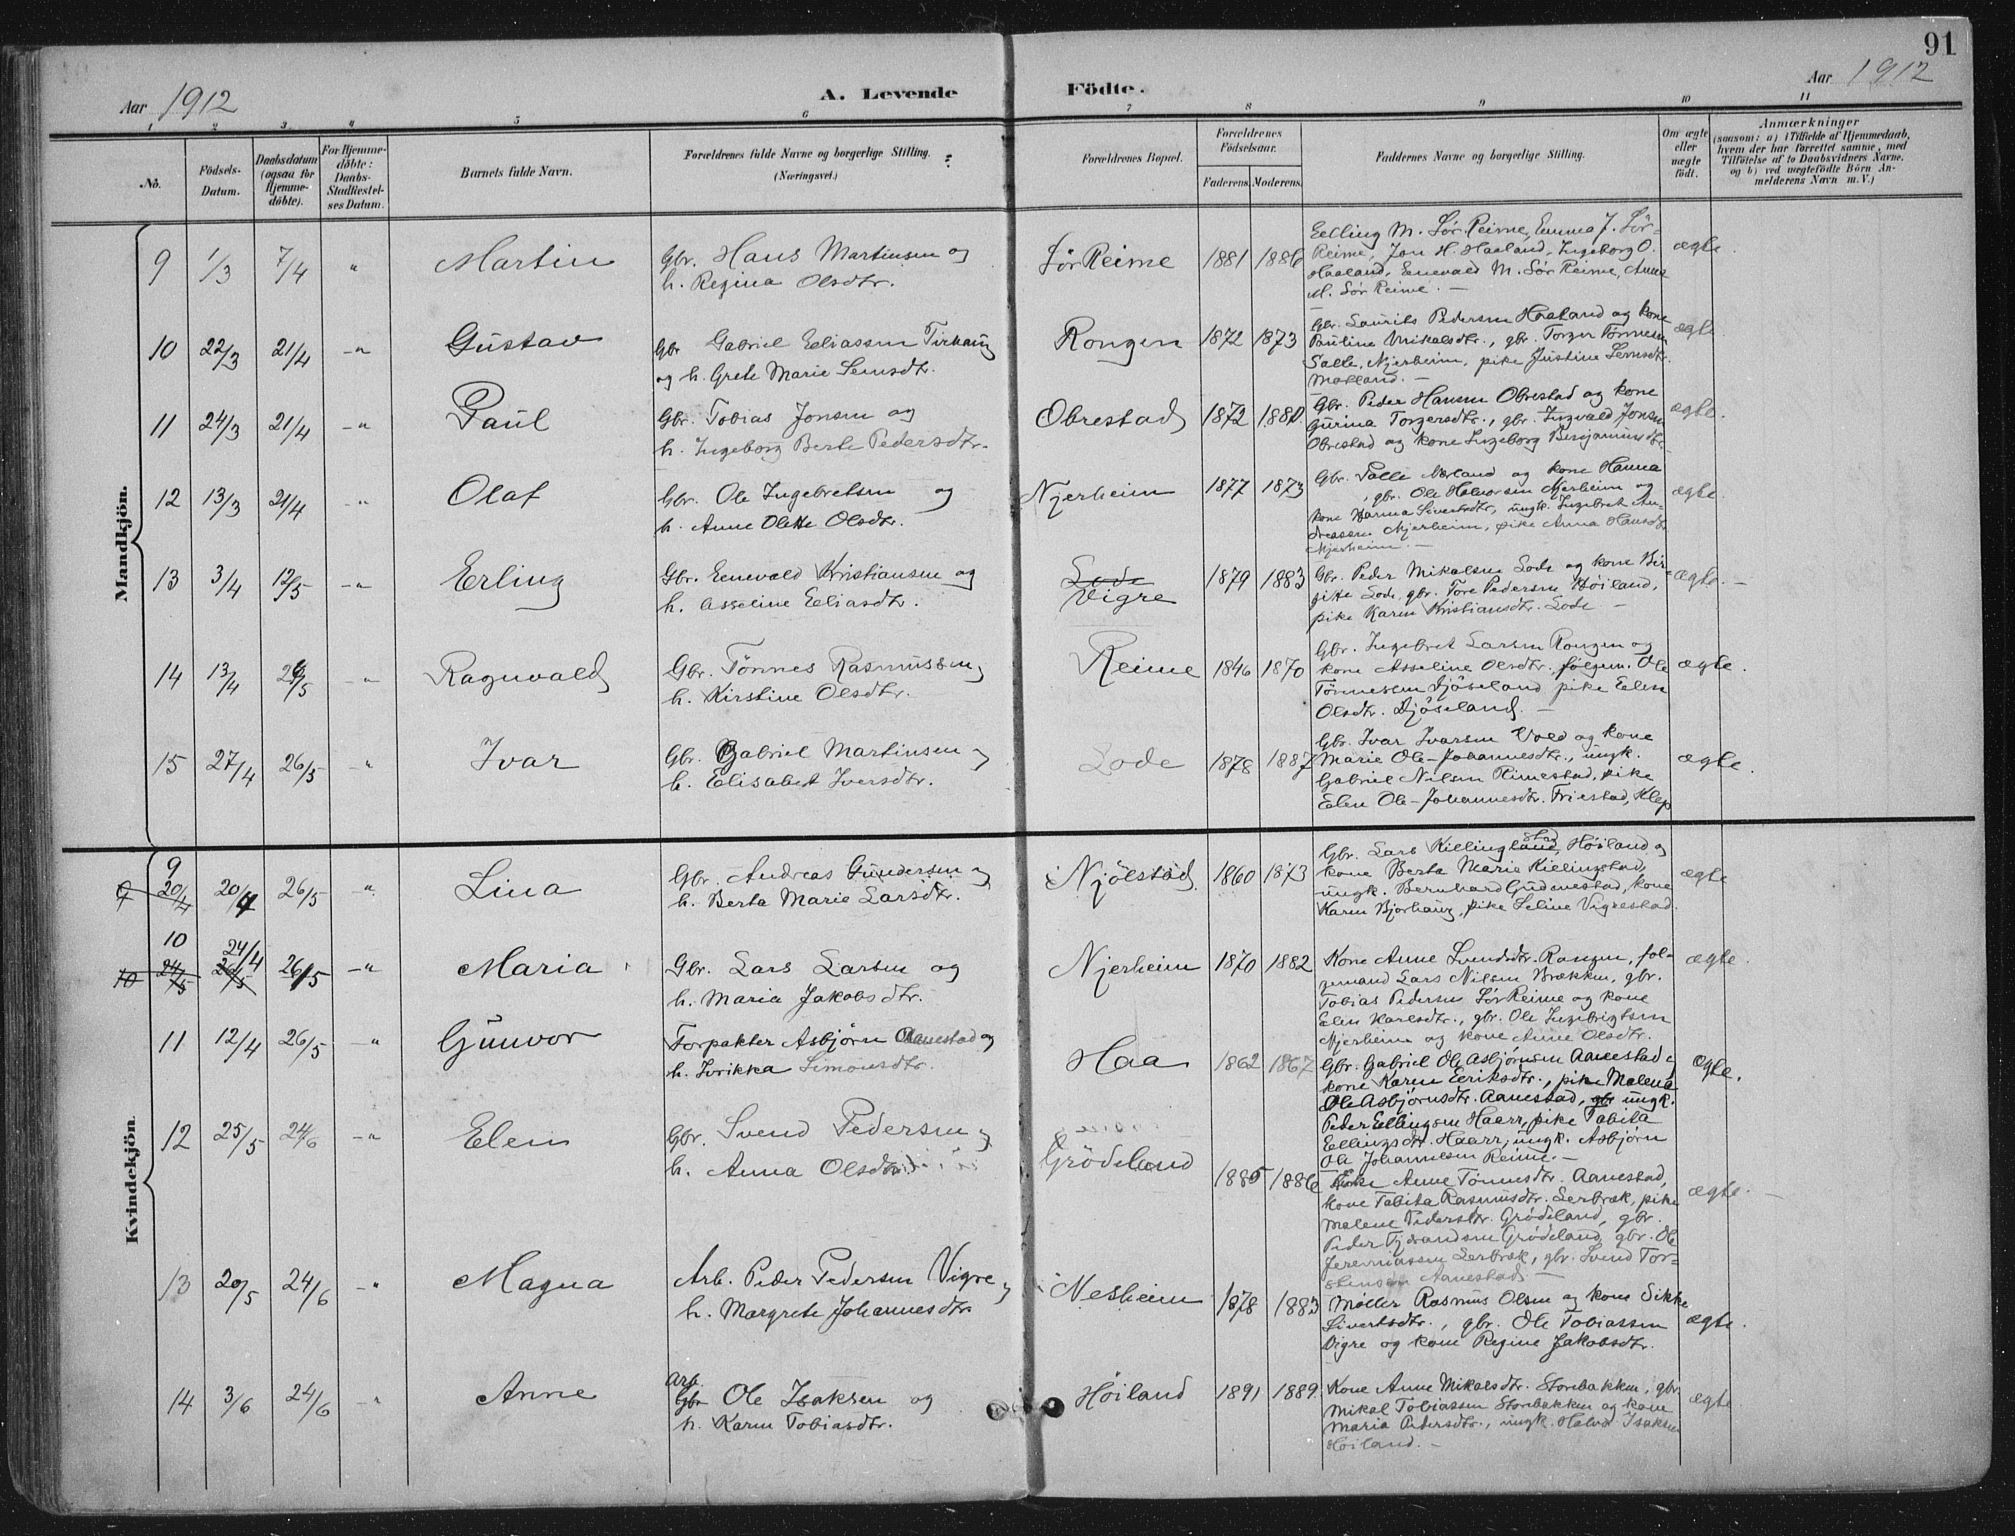 91
Aar 1912
A. Levende Födte.
Aar 1912
1 2 3 4 5 6 7 8 9 10 11
No.
Födsels-Datum.
Daabsdatum (ogsaa for Hjemme-döbte).
For Hjemme-döbte: Daabs-Stadfæstel-ses Datum.
Barnets fulde Navn.
Forældrenes fulde Navne og borgerlige Stilling. (Næringsvei.)
Forældrenes Bopæl.
Forældrenes Födselsaar.
Faderens. Moderens.
Faddernes Navne og borgerlige Stilling.
Om ægte eller uægte födt.
Anmærkninger
(saasom: a) i Tilfælde af Hjemmedaab, hvem der har forrettet samme, med Tilföielse af to Daabsvidners Navne, og b) ved uægtefödte Börn An-melderens Navn m. V.)
Mandkjön.
9 1/3 7/4 " Martin
Gbr. Hans Martinsen og
h. Regina Olsdtr.
Sør Reime 1881 1886
Eelling M. Sør Reime, Emma J. Sør-
Reime, Jon H. Haaland, Ingeborg O.
Haaland, Enevald M. Sør Reime, Anna
M. Sør Reime. —
ægte
10 22/3 21/4 -" Gustav
Gbr Gabriel Eeliassen Tirhaug
og h. Grete Marie Semsdtr.
Rongen 1872 1873
Gbr. Laurits Pedersen Haaland og kone
Pauline Mikalsdtr., gbr. Torger Tønnesen
Salte, Njerheim, pike Justine Semsdtr.
Matland. —
ægte
11 24/3 21/4 -" Paul
Gbr. Tobias Jonsen og
h. Ingeborg Berte Pedersdtr.
Obrestad 1872 1880.
Gbr. Peder Hansen Obrestad og kone
Gurina Torgersdtr., gbr. Ingvald Jonsen
Obrestad og kone Ingeborg Benjaminsdtr.
ægte.
12 13/3 21/4 -" Olaf
Gbr. Ole Ingebretsen og
h. Anne Olette Olsdtr.
Njerheim 1877 1873
Gbr. Palle Nærland og kone Hanna
, gbr. Ole Halvorsen Njerheim og
kone Hanna Sivertsdtr, ungk. Ingebret An-
dreassen Njerheim, pike Anna Hansdtr
Njerheim. —
ægte
13 3/4 12/5 -" Erling
Gbr. Eenevald Kristiansen og
h. Asseline Eeliasdtr.
Lode
Vigre 1879 1883
Gbr. Peder Mikalsen Lode og kone Bir-
gitte Lode, gbr. Tore Pedersen Høiland,
pike Karen Kristiansdtr. Lode —
ægte. —
14 13/4 26/5 -" Ragnvald
Gbr. Tønnes Rasmussen og
h. Kirstine Olsdtr.
Reime 1846 1870
Gbr. Ingebret Larsen Rongen og
kone Asseline Olsdtr. følgem. Ole
Tønnessen Djøseland pike Eelen
Olsdtr. Djøseland. —
ægte.
15 27/4 26/5 -" Ivar
Gbr. Gabriel Martinsen og
h. Elisabet Iversdtr.
Lode 1878 1887
Gbr. Ivar Ivarsen Vold og kone
Marie Ole-Johannesdtr., ungk.
Gabriel Nilsen Rimestad, pike
Eelen Ole-Johannesdtr. Friestad, Klep
ægte.
Kvindekjön.
9
9 20/4 20/4 26/5 -" Lina
Gbr. Andreas Gundersen og
h. Berta Marie Larsdtr.
Njølstad 1860 1873
Gbr. Lars Kiellingland, stad Høiland og
kone Berta Marie Kiellingstad,
ungk. Bernhard Gudmestad, kone
Karen Bjorhaug, pike Seline Vigrestad.
ægte
10 24/4
10 24/5 26/5 26/5 -" Maria
Gbr. Lars Larsen og
h. Maria Jakobsdtr.
Njerheim 1870 1882
Kone Anne Svendsdtr. Rongen, føl-
gemand Lars Nilsen Brækken, gbr.
Tobias Pedersen Sør Reime og kone
Elen Karlsdtr., gbr. Ole Ingebrigtsen
Njerheim og kone Anne Olsdtr.
ægte.
11 12/4 26/5 -" Gunvor
Forpakter Asbjørn Aanestad og
h. Jvrikka Simonsdtr.
Haa 1862 1867
Gbr. Gabriel Ole Asbjørnsen Aanestad og
kone Karen Eeriksdtr., pike Malena
Ole Asbjørnsdtr. Aanestad, gbr ungk.
Peder Eellingsen Haarr, pike Tabita
Eellingsdtr. Haarr, ungk. Asbjørn
Ole Johannesen Reime. —
Ægte.
12 25/5 24/6 -" Elen
Gbr. Svend Pedersen og
h. Anna Olsdtr.
Grödeland 1885 1886
Pike Anne Tønnesdtr. Aanestad,
kone Tabita Rasmusdtr. Serbræk, pike
Malene Pedersdtr. Grødeland, gbr.
Peder Tjerandsen Grødeland, gbr. Ole
Jeremiassen Serbræk, gbr. Svend Tor-
stensen Aanestad —
ægte. —
13 20/5 24/6 -" Magna
Arb. Peder Pedersen Vigre og
h. Margrete Johannesdtr.
Nesheim 1878 1883
Møller Rasmus Olsen og kone Sikke
Sivertsdtr., gbr. Ole Tobiassen
Vigre og kone Regine Jakobsdtr.
ægte.
14 3/6 24/6 -" Anne
Arb.
Gbr Ole Isaksen og
h. Karen Tobiasdtr.
Høiland 1891 1889.
Kone Anne Mikalsdtr. Storebakken, gbr.
Mikal Tobiassen Storebakken og kone
Maria Pedersdtr., ungk. Halvor Isaksen
Høiland. —
ægte